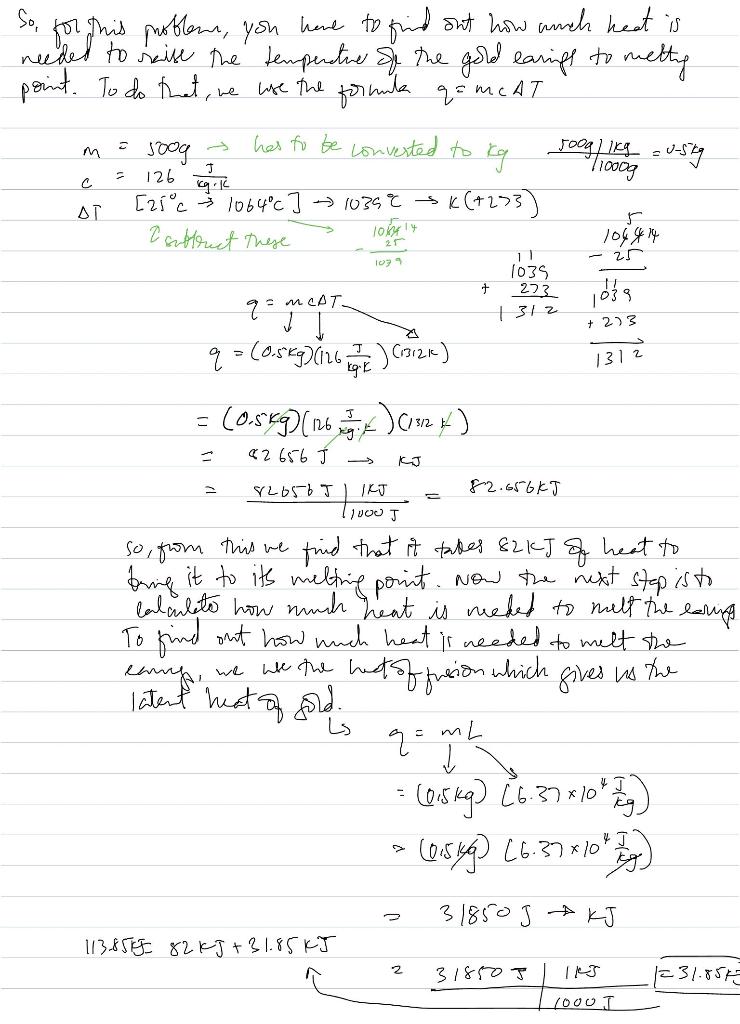 So, for this problem, you have to find out how much heat is
needed to raise the temperature of the gold earings to melting
point. To do that, we use the formula q = mcΔT
m = 500g → has to be converted to kg 500g | 1kg / 1000g = 0.5kg
c = 126 J/kg·K
ΔT [25°C → 1064°C] → 1039°C → K (+273)
↑ subtract these → 1064 5 14
- 25
1039
5
1064 14
- 25
11
1039
+ 273
1312
11
1039
+ 273
1312
q = mcΔT
q = (0.5kg)(126 J/kg·K)(1312K)
= (0.5kg)(126 J/kg·K)(1312 K)
= 82656 J → KJ
= 82656 J | 1KJ / 1000 J = 82.656KJ
So, from this we find that it takes 82KJ of heat to
bring it to its melting point. Now the next step is to
calculate how much heat is needed to melt the earings
To find out how much heat is needed to melt the
earings, we use the heat of fusion which gives us the
latent heat of gold.
↳ q = mL
= (0.5kg) (6.37 × 10⁴ J/kg)
= (0.5kg) (6.37 × 10⁴ J/kg)
= 31850 J → KJ
113.85KJ = 82 KJ + 31.85 KJ
= 31850 J | 1KJ / 1000 J = 31.85KJ